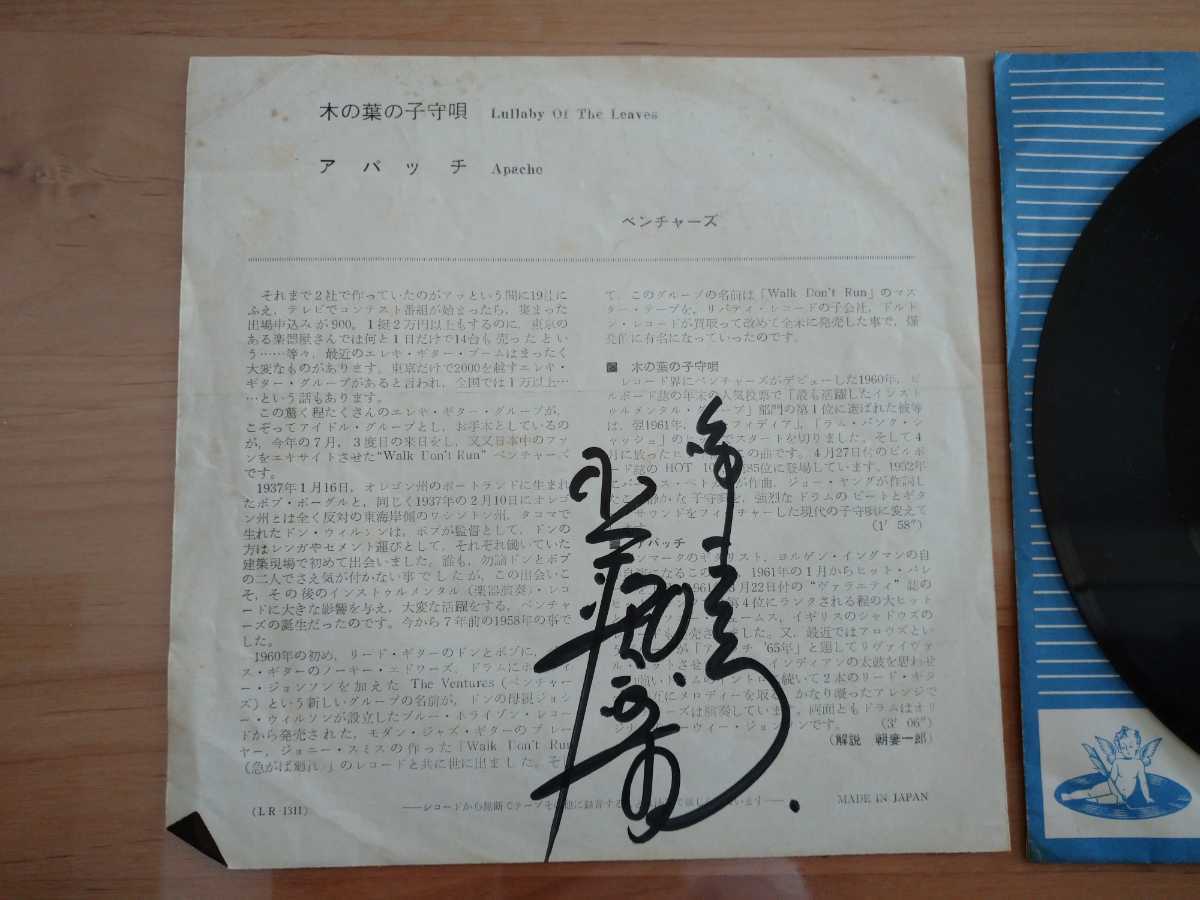 木の葉の子守唄 Lullaby Of The Leaves
アパッチ Apache
ベンチャーズ
それまで2社で作っていたのがアッという間に19社に
ふえ、テレビでコンテスト番組が始まったら、集まった
出場申込みが900。1挺2万円以上もするのに、東京の
ある楽器獣さんでは何と1日だけで14台も売ったとい
う……等々、最近のエレキ・ギター・ブームはまったく
大変なものがあります。東京だけで2000を越すエレキ・
ギター・グループがあると言われ、全国では1万以上…
…という話もあります。
この驚く程たくさんのエレキ・ギター・グループが、
こぞってアイドル・グループとし、お手本としているの
が、今年の7月、3度目の来日をし、又又日本中のファ
ンをエキサイトさせた“Walk Don't Run”ベンチャーズ
です。
1937年1月16日、オレゴン州のポートランドに生まれ
たボブ・ボーグルと、同じく1937年の2月10日にオレゴ
ン州とは全く反対の東海岸側のワシントン州、タコマで
生れたドン・ウィルソンは、ボブが監督として、ドンの
方はレンガやセメント運びとして、それぞれ働いていた
建築現場で初めて出会いました。誰も、勿論ドンとボブ
の二人でさえ気が付かない事でしたが、この出会いこ
そ、その後のインストゥルメンタル(楽器演奏)・レコ
ードに大きな影響を与え、大変な活躍をする、ベンチャ
ーズの誕生だったのです。今から7年前の1958年の事で
した。
1960年の初め、リード・ギターのドンとボブに、
ス・ギターのノーキー・エドワーズ、ドラムにホ
ー・ジョンソンを加えた The Ventures (ベンチャー
ズ)という新しいグループの名前が、ドンの母親ジョシ
ー・ウィルソンが設立したブルー・ホライゾン・レコー
ドから発売された、モダン・ジャズ・ギターのプレー
ヤー、ジョニー・スミスの作った「Walk Don't Run
(急がば廻れ)」のレコードと共に世に出ました。そし
て、このグループの名前は「Walk Don't Run」のマス
ター・テープを、リバティ・レコードの子会社、ドルト
ン・レコードが買取って改めて全米に発売した事で、爆
発的に有名になっていったのです。
■ 木の葉の子守唄
レコード界にベンチャーズがデビューした1960年、ビ
ルボード誌の年末の人気投票で「最も活躍したインスト
ゥルメンタル・グループ」部門の第1位に選ばれた彼等
は、翌1961年、フィディア」、「ラム・バンク・シ
ャッシュ」のヒットでスタートを切りました。そして4
月に放ったヒットがこの曲です。4月27日付のビルボ
ード誌の HOT 10 85位に登場しています。1952年
バーニス・ペト が作曲、ジョー・ヤングが作詞し
たこの静かな子守唄を、強烈なドラムのビートとギタ
サウンドをフィーチャーした現代の子守唄に変えて
(1′ 58″)
■ アパッチ
ンマークのギタリスト、ヨルゲン・イングマンの自
なるこの 1961年の1月からヒット・パレ
1961 月22日付の“ヴァラエティ”誌の
第4位にランクされる程の大ヒット
ームス、イギリスのシャドウズの
も 売さ した。又、最近ではアロウズとい
が「ア ッチ ’65年」と題してリヴァイヴァ
ル・ さ インディアンの太鼓を思わせ
強いドラム ントロ 続いて2本のリード・ギタ
互にメロディーを取る かなり凝ったアレンジで
ーズは演奏しています。両面ともドラムはオリ
ーウィー・ジョンソンです。 (3′ 06″)
(解説 朝妻一郎)
(LR-1311)
——レコードから無断でテープその他に録音する
MADE IN JAPAN